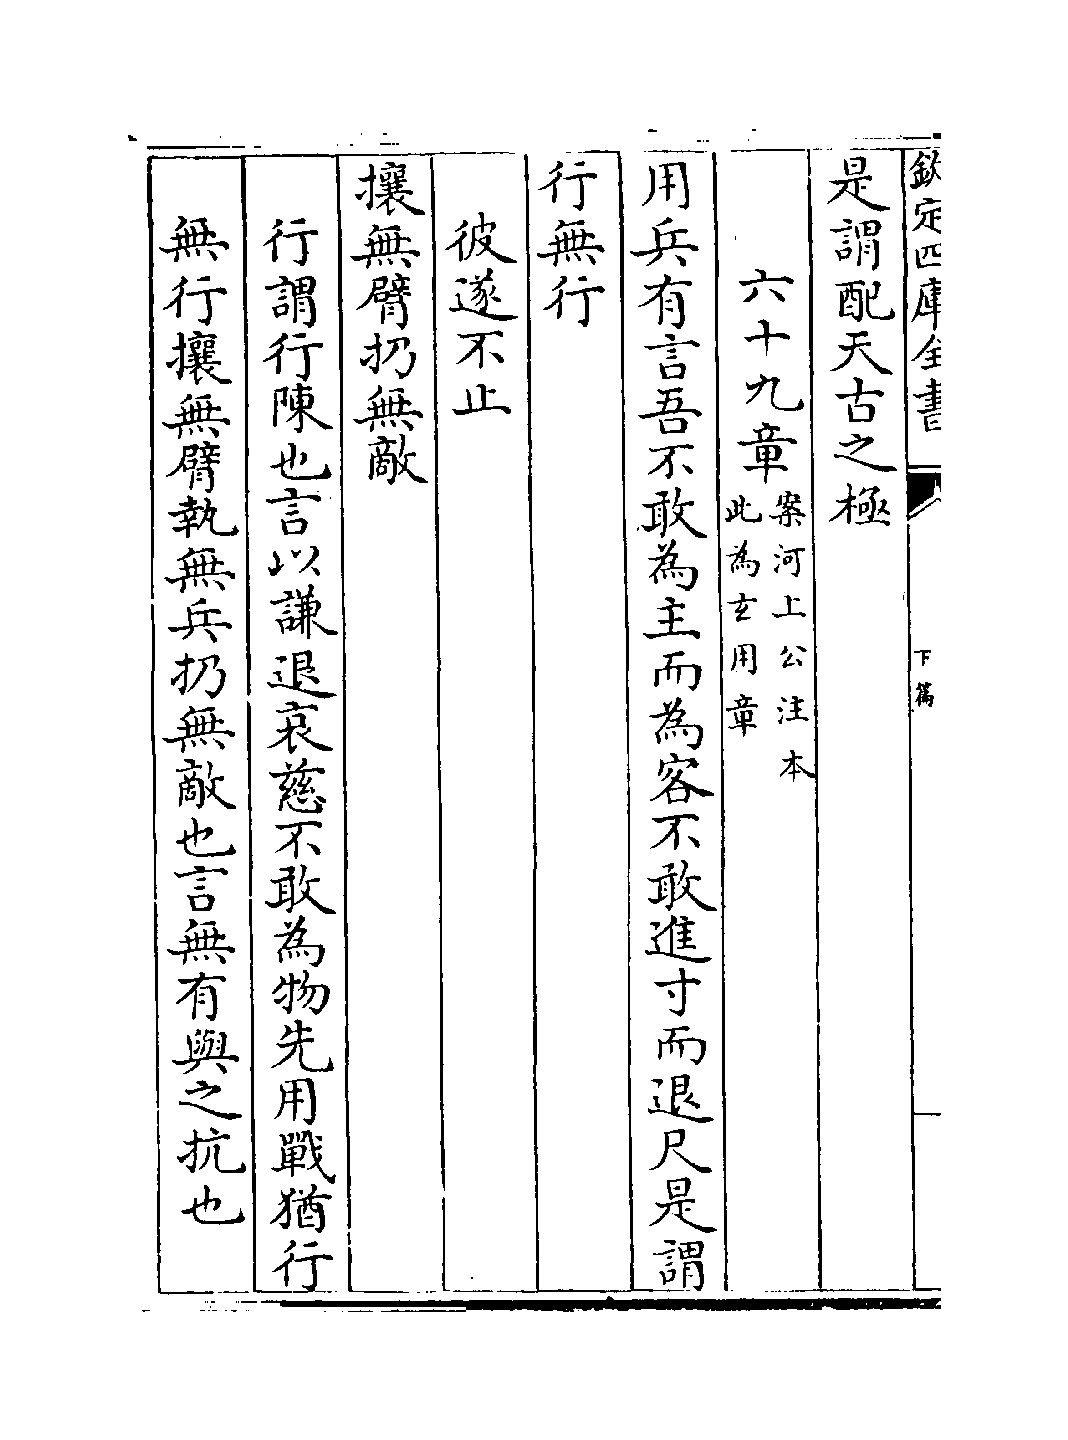 欽定四庫全書
下篇
是謂配天古之極
六十九章案河上公注本此為玄用章
用兵有言吾不敢為主而為客不敢進寸而退尺是謂
行無行
彼遂不止
攘無臂扔無敵
行謂行陳也言以謙退哀慈不敢為物先用戰猶行
無行攘無臂執無兵扔無敵也言無有與之抗也